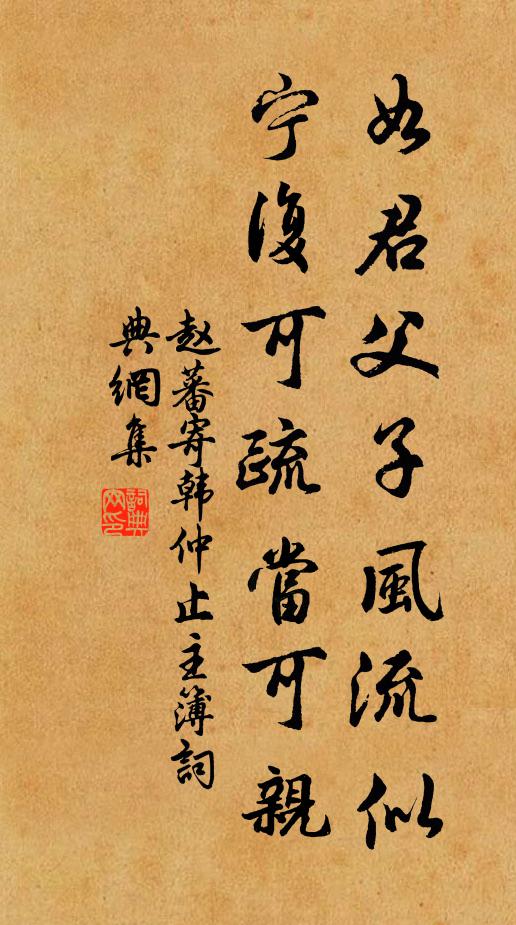 如君父子風流似
宁復可疏當可親
赵蕃寄韩仲止主簿詞
典網集
詞典網印